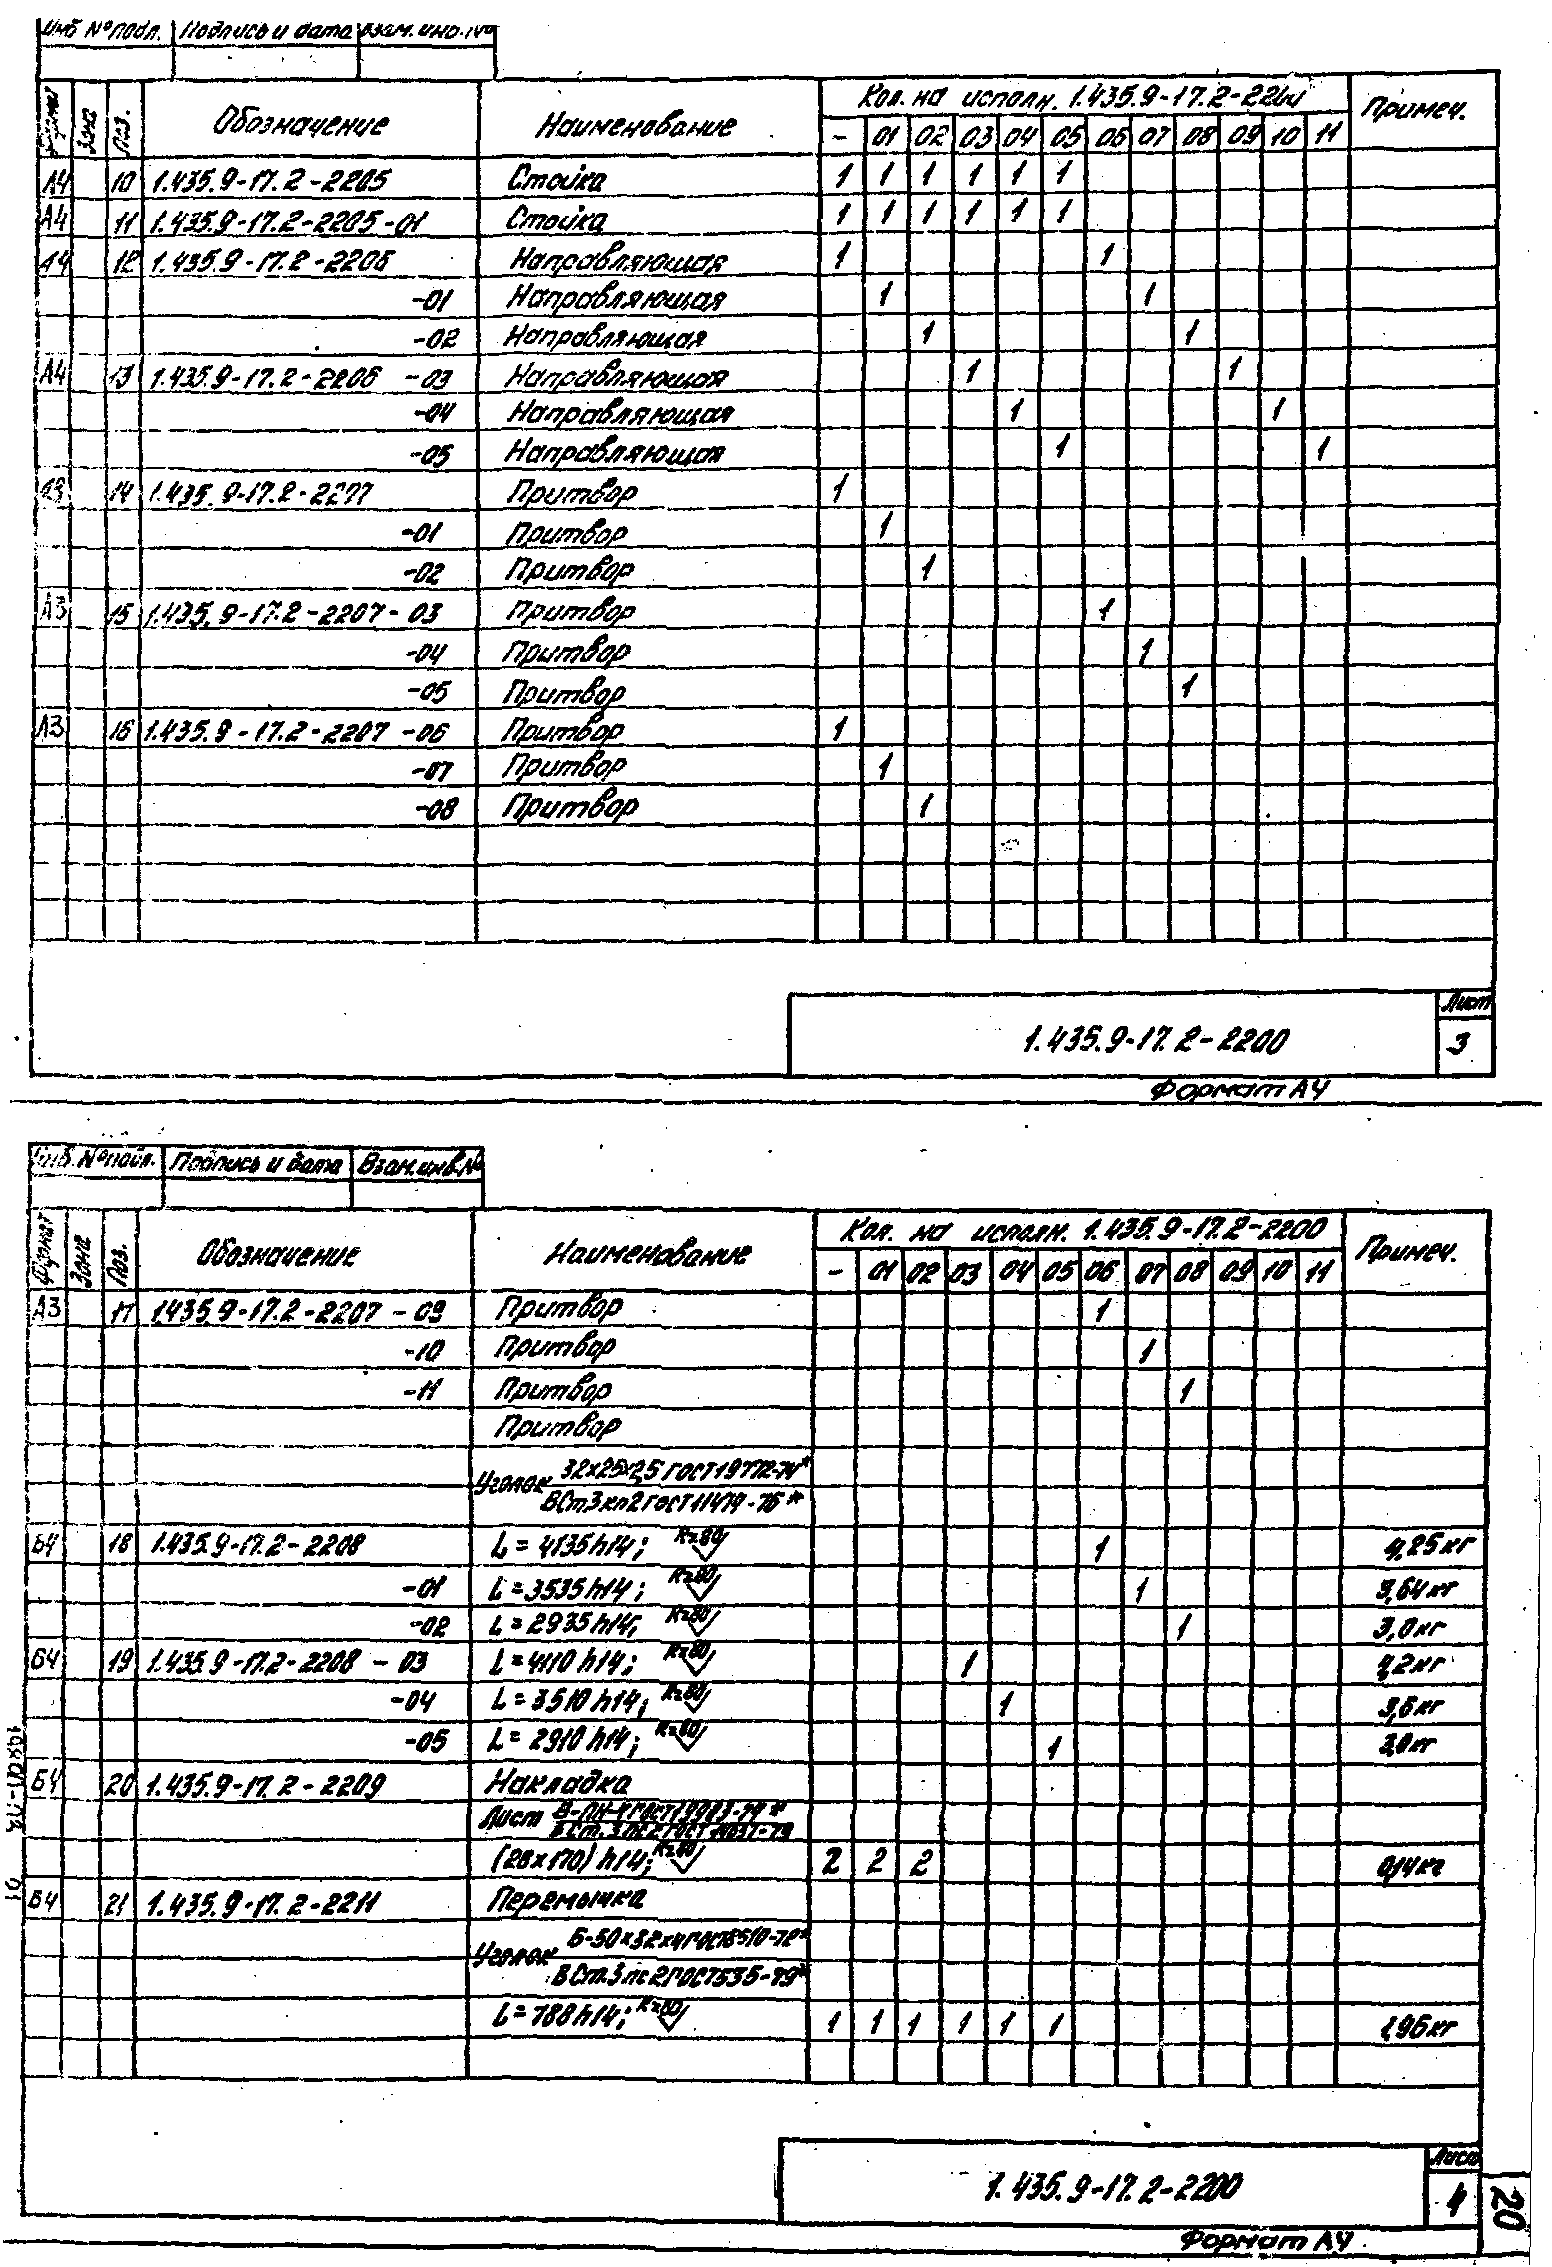 Инв. № подл. Подпись и дата Взам. инв. №
Формат Зона Поз. Обозначение Наименование Кол. на исполн. 1.435.9-17.2-2200 Примеч.
- 01 02 03 04 05 06 07 08 09 10 11
А4 10 1.435.9-17.2-2205 Стойка 1 1 1 1 1 1
А4 11 1.435.9-17.2-2205-01 Стойка 1 1 1 1 1 1
А4 12 1.435.9-17.2-2206 Направляющая 1 1
-01 Направляющая 1 1
-02 Направляющая 1 1
А4 13 1.435.9-17.2-2206 -03 Направляющая 1 1
-04 Направляющая 1 1
-05 Направляющая 1 1
А3 14 1.435.9-17.2-2207 Притвор 1
-01 Притвор 1
-02 Притвор 1
А3 15 1.435.9-17.2-2207-03 Притвор 1
-04 Притвор 1
-05 Притвор 1
А3 16 1.435.9-17.2-2207 -06 Притвор 1
-07 Притвор 1
-08 Притвор 1
1.435.9-17.2-2200
Лист
3
Формат А4
Инв. № подл. Подпись и дата Взам. инв. №
Формат Зона Поз. Обозначение Наименование Кол. на исполн. 1.435.9-17.2-2200 Примеч.
- 01 02 03 04 05 06 07 08 09 10 11
А3 17 1.435.9-17.2-2207-09 Притвор 1
-10 Притвор 1
-11 Притвор 1
Притвор
Уголок 32х25х2,5 ГОСТ 19772-74*
ВСт3кп2 ГОСТ 11474-76*
Б4 18 1.435.9-17.2-2208 L=4135h14; Rz80 1 4,25кг
-01 L=3535h14; Rz80 1 3,64кг
-02 L=2935h14; Rz80 1 3,0кг
Б4 19 1.435.9-17.2-2208 -03 L=4110h14; Rz80 1 4,2кг
-04 L=3510h14; Rz80 1 3,6кг
-05 L=2910h14; Rz80 1 3,0кг
Б4 20 1.435.9-17.2-2209 Накладка
Лист Б-ПН-4 ГОСТ 19903-74*
ВСт.3пс2 ГОСТ 14637-79
(28х170)h14; Rz80 2 2 2 0,14кг
Б4 21 1.435.9-17.2-2211 Перемычка
Уголок Б-50х32х4 ГОСТ 8510-72*
ВСт.3пс2 ГОСТ 535-79*
L=788h14; Rz80 1 1 1 1 1 1 1,96кг
1.435.9-17.2-2200
Лист
4
Формат А4
20